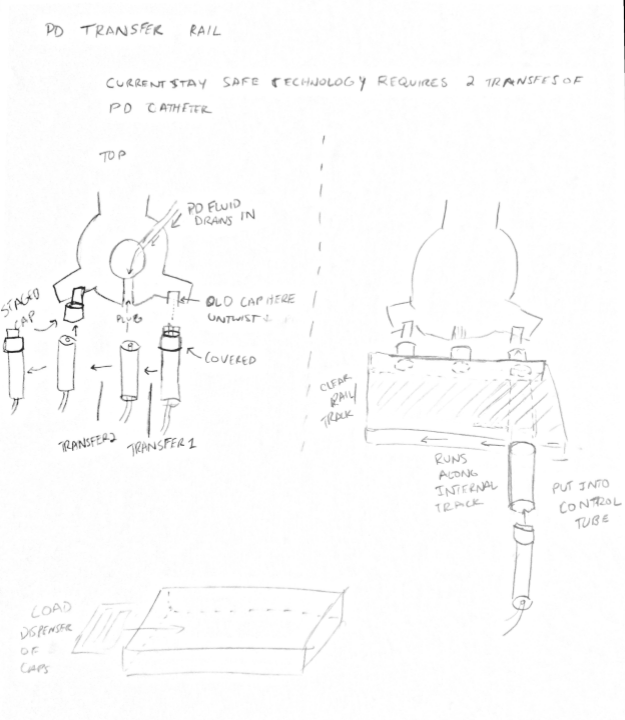 PD TRANSFER RAIL
CURRENT STAY SAFE TECHNOLOGY REQUIRES 2 TRANSFES OF
PD CATHETER
TOP
PD FLUID
DRANS IN
STAGED
CAP
PLUG
OLD CAP HERE
UNTWIST
COVERED
TRANSFER2
TRANSFER 1
CLEAR
RAIL/
TRACK
RUNS
ALONG
INTERNAL
TRACK
PUT INTO
CONTROL
TUBE
LOAD
DISPENSER
OF
CAPS